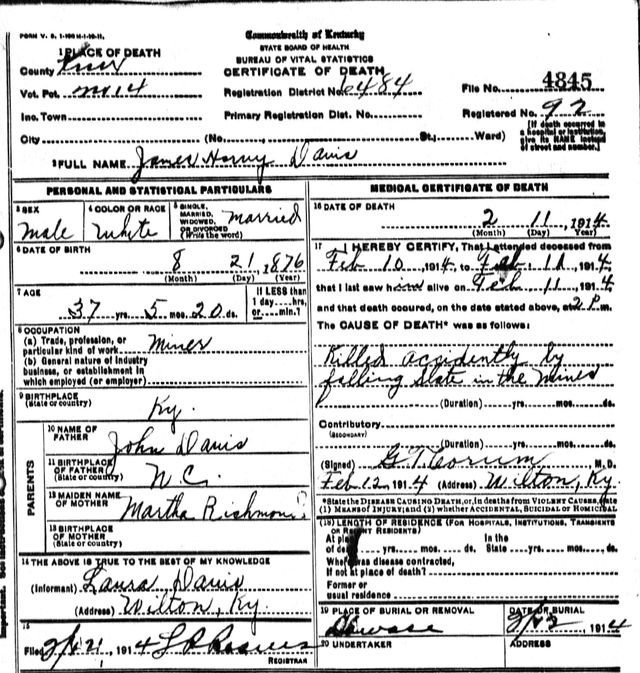 FORM V. S. 1-100 M-1-10-11.
Commonwealth of Kentucky
STATE BOARD OF HEALTH
BUREAU OF VITAL STATISTICS
CERTIFICATE OF DEATH
1 PLACE OF DEATH
County Knox
Vot. Pct. No 14
Inc. Town
City (No. St.; Ward)
Registration District No. 6484
Primary Registration Dist. No.
File No. 4845
Registered No. 92
(If death occurred in
a hospital or institution,
give its NAME instead
of street and number.)
2 FULL NAME James Harvy Davis
PERSONAL AND STATISTICAL PARTICULARS
3 SEX
Male
4 COLOR OR RACE
White
5 SINGLE,
MARRIED,
WIDOWED,
OR DIVORCED
(Write the word)
Married
6 DATE OF BIRTH
8 21, 1876
(Month) (Day) (Year)
7 AGE
37 yrs. 5 mos. 20 ds.
If LESS than
1 day---hrs,
or---min.?
8 OCCUPATION
(a) Trade, profession, or
particular kind of work Miner
(b) General nature of industry
business, or establishment in
which employed (or employer)
9 BIRTHPLACE
(State or country)
Ky.
PARENTS
10 NAME OF
FATHER
John Davis
11 BIRTHPLACE
OF FATHER
(State or country)
N.C.
12 MAIDEN NAME
OF MOTHER
Martha Richmond
13 BIRTHPLACE
OF MOTHER
(State or country)
14 THE ABOVE IS TRUE TO THE BEST OF MY KNOWLEDGE
(Informant) Laura Davis
(Address) Wilton, Ky.
15
Filed 2/21, 1914
REGISTRAR
MEDICAL CERTIFICATE OF DEATH
16 DATE OF DEATH
2 11, 1914
(Month) (Day) (Year)
17 I HEREBY CERTIFY, That I attended deceased from
Feb 10, 1914, to Feb 11, 1914
that I last saw him alive on Feb 11, 1914
and that death occured, on the date stated above, at 2 P.m.
The CAUSE OF DEATH* was as follows:
Killed accidently by
falling Slate in the Mines
(Duration) yrs. mos. ds.
Contributory
(SECONDARY)
(Duration) yrs. mos. ds.
(Signed) G T Corum, M.D.
Feb 12, 1914 (Address) Wilton, Ky.
*State the DISEASE CAUSING DEATH, or, in deaths from VIOLENT CAUSES, state
(1) MEANS OF INJURY; and (2) whether ACCIDENTAL, SUICIDAL or HOMICIDAL
(18) LENGTH OF RESIDENCE (FOR HOSPITALS, INSTITUTIONS, TRANSIENTS
OR RECENT RESIDENTS)
At place In the
of death yrs. mos. ds. State yrs. mos. ds.
Where was disease contracted,
If not at place of death?
Former or
usual residence
19 PLACE OF BURIAL OR REMOVAL
DATE OR BURIAL
2/12, 1914
20 UNDERTAKER
ADDRESS
Important.